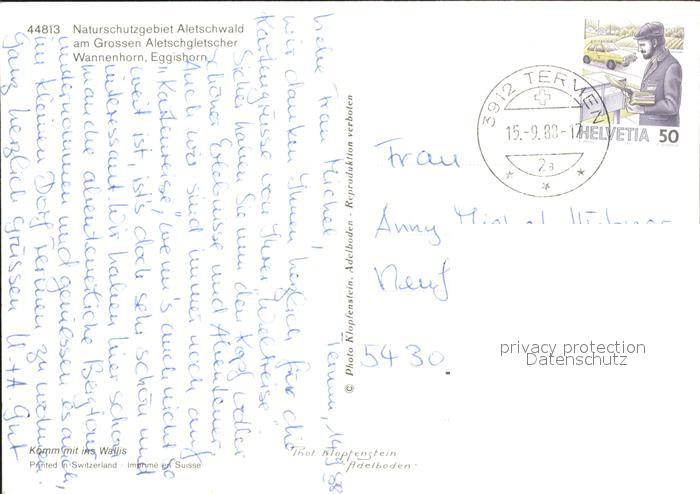 44813 Naturschutzgebiet Aletschwald
am Grossen Aletschgletscher
Wannenhorn, Eggishorn
3912 TERMEN
15.-9.88-17
2a
HELVETIA 50
Termen, 14.9.88
Liebe Frau Michel,
wir danken Ihnen herzlich für die
Kartengrüsse von Ihrer "Weltreise".
Sicher haben Sie nun den Kopf voller
schöner Erlebnisse und Abenteuer.
Auch wir sind immer noch auf
"Kartenreise", wenn's auch nicht so
weit ist, ist's doch sehr schön und
interessant. Wir haben hier schon
manche abenteuerliche Bergtour
unternommen und geniessen es auch,
im kleinen Dorf Termen zu wohnen.
Ganz herzlich grüssen
Frau
Anny Michel
5430
© Photo Klopfenstein, Adelboden - Reproduktion verboten
privacy protection
Datenschutz
Komm mit ins Wallis
Printed in Switzerland - Imprimé en Suisse
Phot. Klopfenstein
Adelboden